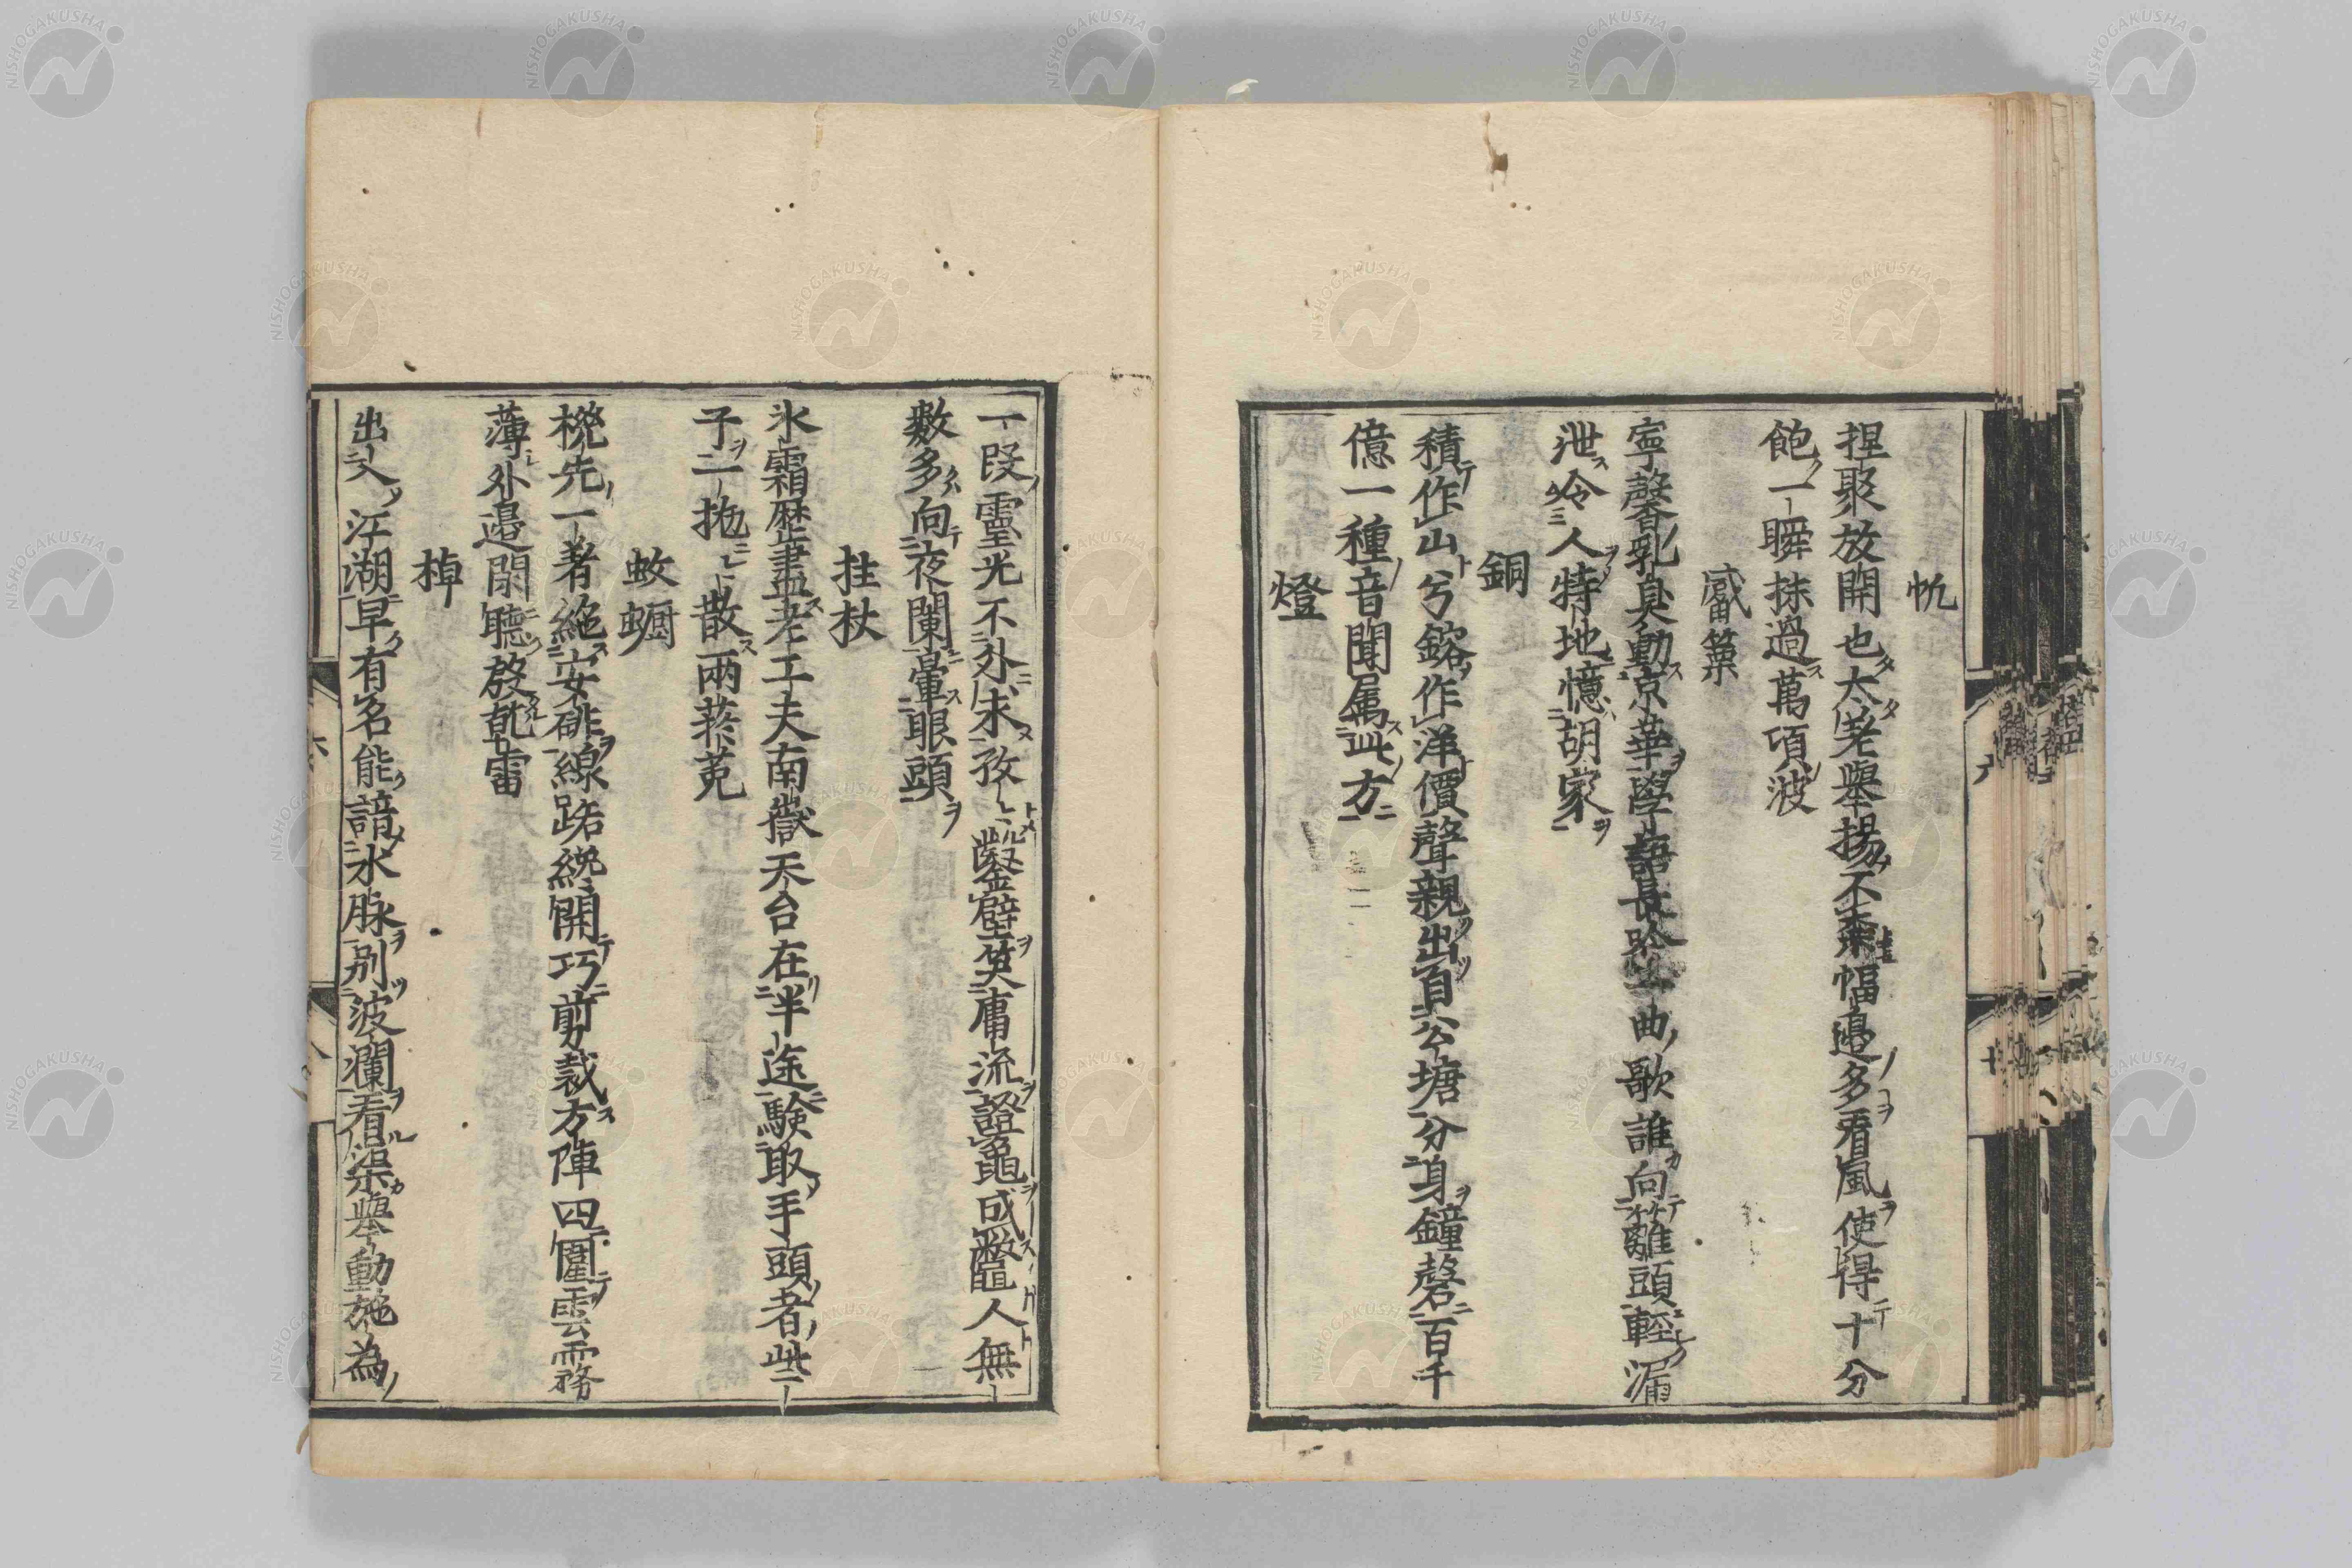 帆
捏聚放開也太老擧揚不棄幅邉多看風使得十分
飽一瞬抹過萬頃波
觱篥
寧馨乳臭動京華學語長吟曲歌誰向籬頭輕漏
泄令人特地憶胡家
銅
積作山兮鎔作洋價聲親出頁公塘分身鐘磬百千
億一種音聞属此方
燈
一段霊光不外求孜〻鑿壁笑庸流證龜成鼈人無
數多向夜闌暈眼頭
拄杖
氷霜歴盡老工夫南嶽天台在半途驗取手頭者些
子一拖〻散兩菸菟
蚊㡡
機先一着絶安排線路纔開巧剪裁方陣四圍雲霧
薄外邉閑聽發乾雷
棹
出入江湖早有名能諳水脉别波瀾看渠擧動施為